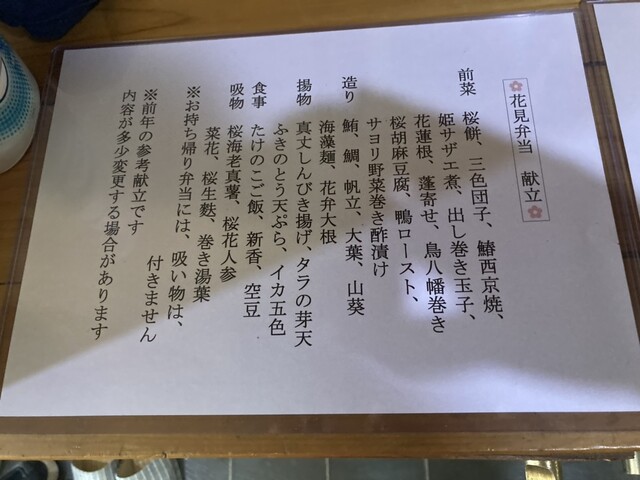 花見弁当 献立
前菜 桜餅、三色団子、鰆西京焼、
姫サザエ煮、出し巻き玉子、
花蓮根、蓬寄せ、鳥八幡巻き
桜胡麻豆腐、鴨ロースト、
サヨリ野菜巻き酢漬け
造り 鮪、鯛、帆立、大葉、山葵
海藻麺、花弁大根
揚物 真丈しんびき揚げ、タラの芽天
ふきのとう天ぷら、イカ五色
食事 たけのこご飯、新香、空豆
吸物 桜海老真薯、桜花人参
菜花、桜生麩、巻き湯葉
※お持ち帰り弁当には、吸い物は、
付きません
※前年の参考献立です
内容が多少変更する場合があります